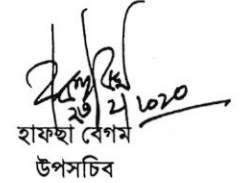 ২৩/২/২০২০
হাফছা বেগম
উপসচিব